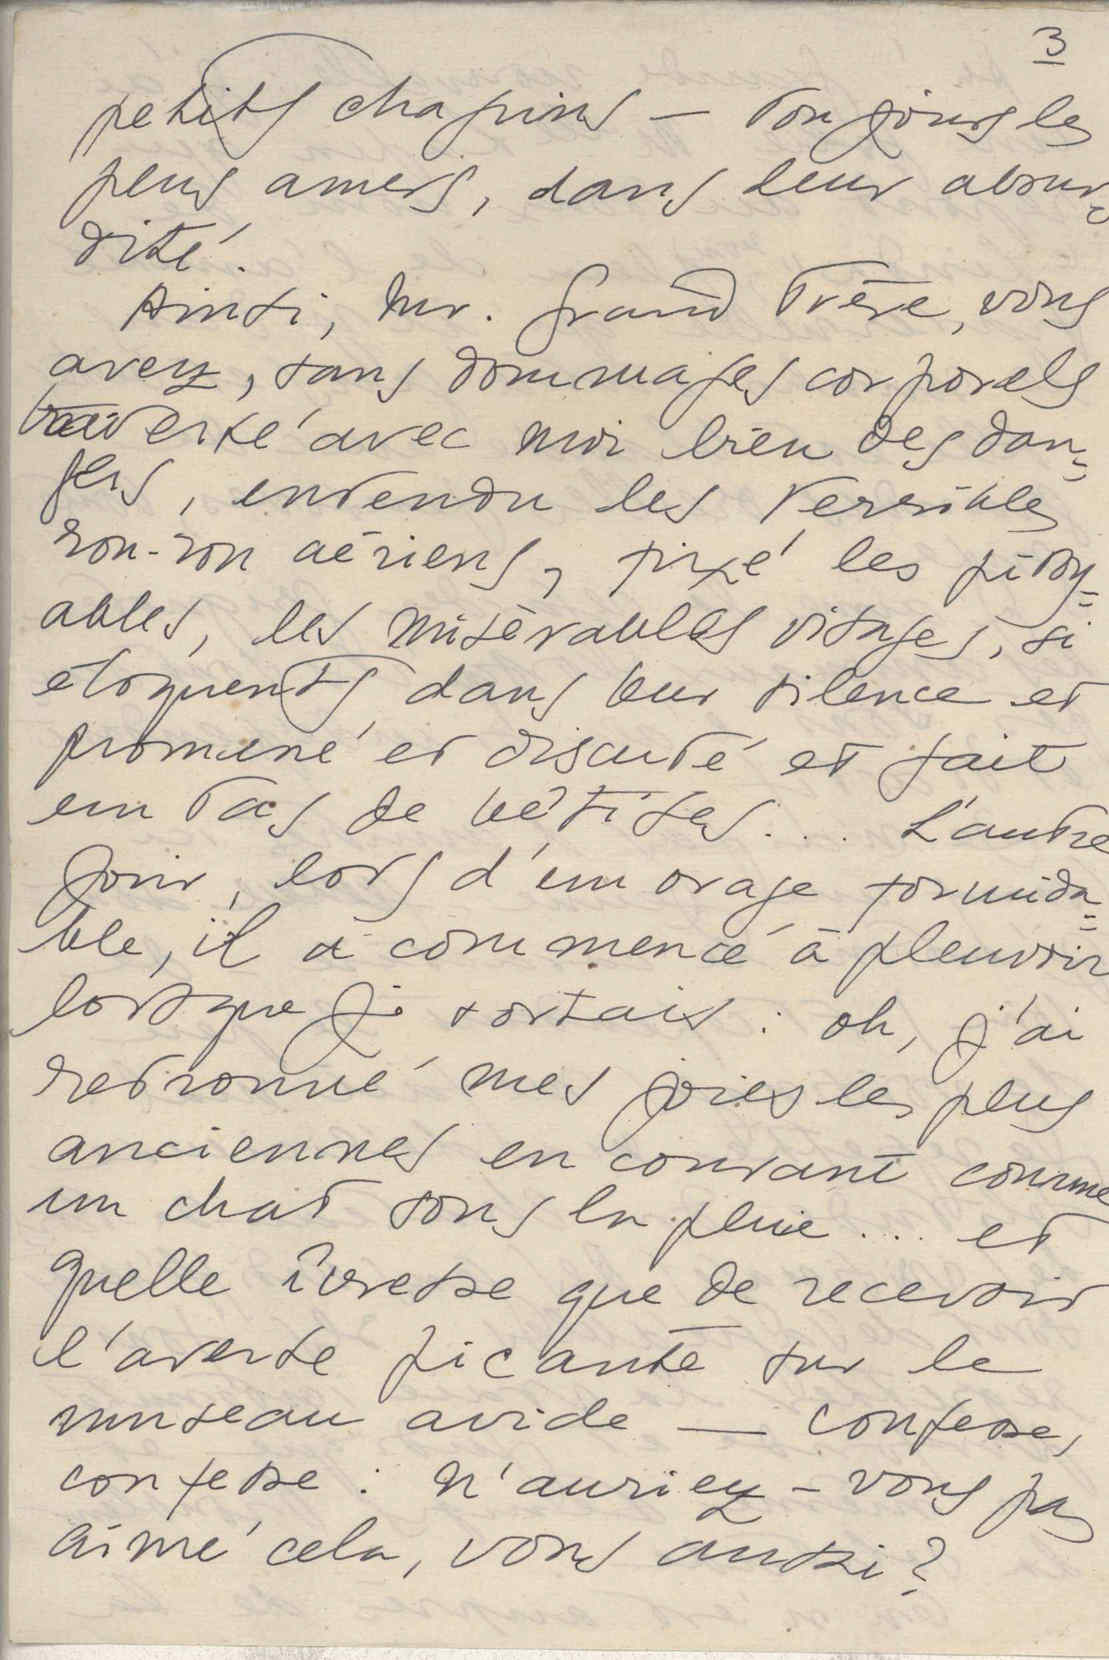 3
petits chagrins — toujours les
plus amers, dans leur absur-
dité.
Ainsi, Mr. Grand Frère, vous
avez, sans dommages corporels
traversé avec moi bien des dan-
gers, entendu les terribles
ron-ron aériens, fixé les pitoy=
ables, les misérables visages, si
éloquents dans leur silence et
promené et discuté et fait
un tas de bêtises... L'autre
jour, lors d'un orage formida=
ble, il a commencé à pleuvoir
lorsque je sortais : oh, j'ai
retrouvé mes joies les plus
anciennes en courant comme
un chat sous la pluie... et
quelle ivresse que de recevoir
l'averse picante sur le
museau avide — confesse,
confesse : n'auriez-vous pas
aimé cela, vous aussi?